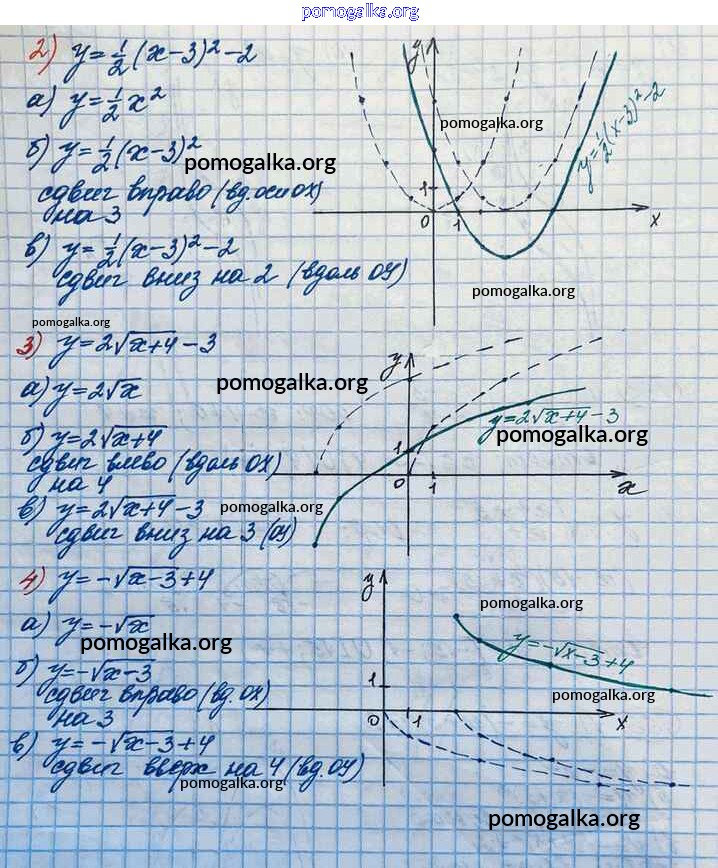 pomogalka.org
2) y=½(x-3)²-2
а) y=½x²
pomogalka.org
y=½(x-3)²-2
б) y=½(x-3)²
pomogalka.org
сдвиг вправо (вд. оси OX)
на 3
в) y=½(x-3)²-2
сдвиг вниз на 2 (вдоль OY)
y
1
0
1
x
pomogalka.org
pomogalka.org
3) y=2√x+4-3
а) y=2√x
pomogalka.org
б) y=2√x+4
сдвиг влево (вдоль OX)
на 4
в) y=2√x+4-3
pomogalka.org
сдвиг вниз на 3 (OY)
y
y=2√x+4-3
pomogalka.org
1
0
1
x
4) y=-√x-3+4
а) y=-√x
pomogalka.org
б) y=-√x-3
сдвиг вправо (вд. OX)
на 3
в) y=-√x-3+4
сдвиг вверх на 4 (вд. OY)
pomogalka.org
y
pomogalka.org
y=-√x-3+4
pomogalka.org
1
0
1
x
pomogalka.org